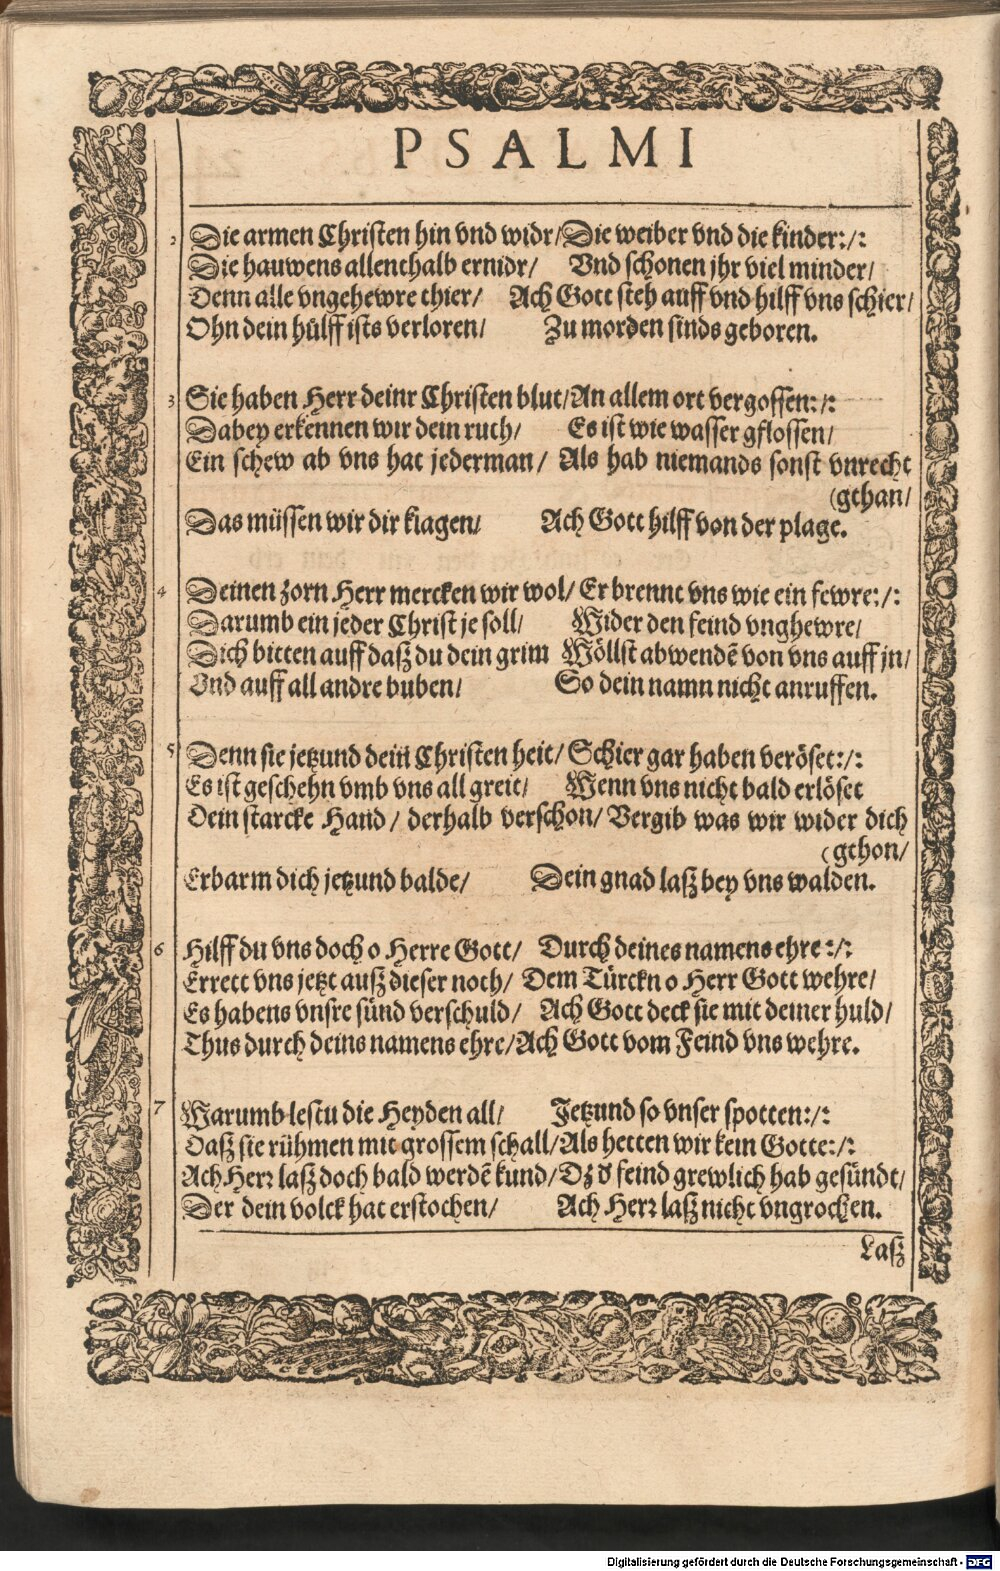 PSALMI
2 Die armen Christen hin vnd widr/ Die weiber vnd die kinder:/:
Die hauwens allenthalb ernidr/ Vnd schonen jhr viel minder/
Denn alle vngehewre thier/ Ach Gott steh auff vnd hilff vns schier/
Ohn dein hülff ists verloren/ Zu morden sinds geboren.
3 Sie haben Herr deinr Christen blut/ An allem ort vergossen:/:
Dabey erkennen wir dein ruth/ Es ist wie wasser gflossen/
Ein schew ab vns hat jederman/ Als hab niemands sonst vnrecht
(gthan/
Das müssen wir dir klagen/ Ach Gott hilff von der plage.
4 Deinen zorn Herr mercken wir wol/ Er brennt vns wie ein fewre:/:
Darumb ein jeder Christ je soll/ Wider den feind vnghewre/
Dich bitten auff daß du dein grim Wöllst abwendē von vns auff jn/
Vnd auff all andre buben/ So dein namn nicht anruffen.
5 Denn sie jetzund dein Christen heit/ Schier gar haben veröset:/:
Es ist geschehn vmb vns all greit/ Wenn vns nicht bald erlöset
Dein starcke Hand/ derhalb verschon/ Vergib was wir wider dich
(gthon/
Erbarm dich jetzund balde/ Dein gnad laß bey vns walden.
6 Hilff du vns doch o Herre Gott/ Durch deines namens ehre:/:
Errett vns jetzt auß dieser noth/ Dem Türckn o Herr Gott wehre/
Es habens vnsre sünd verschuld/ Ach Gott deck sie mit deiner huld/
Thus durch deins namens ehre/ Ach Gott vom Feind vns wehre.
7 Warumb lestu die Heyden all/ Jetzund so vnser spotten:/:
Daß sie rühmen mit grossem schall/ Als hetten wir kein Gotte:/:
Ach Herr laß doch bald werdē kund/ Dz d' feind grewlich hab gesündt/
Der dein volck hat erstochen/ Ach Herr laß nicht vngrochen.
Laß
Digitalisierung gefördert durch die Deutsche Forschungsgemeinschaft - DFG